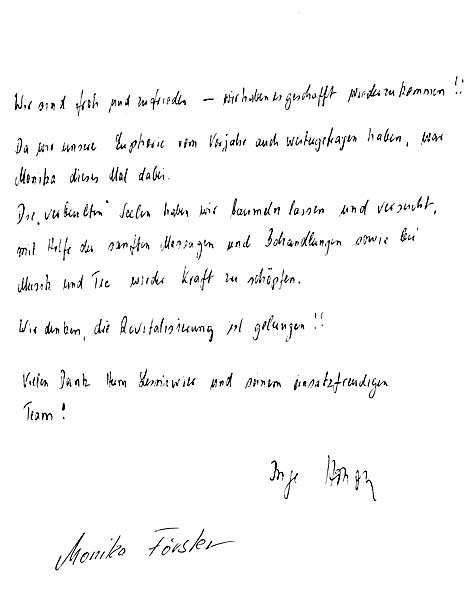 Wir sind froh und zufrieden – wir haben es geschafft wiederzukommen!!
Da wir unsere Euphorie vom Vorjahr auch weitergetragen haben, war
Monika dieses Mal dabei.
Die "verbeulten" Seelen haben wir baumeln lassen und versucht,
mit Hilfe der sanften Massagen und Behandlungen sowie bei
Musik und Tee wieder Kraft zu schöpfen.
Wir denken, die Revitalisierung ist gelungen!!
Vielen Dank Herrn und seinem einsatzfreudigen
Team!
Inge
Monika Förster